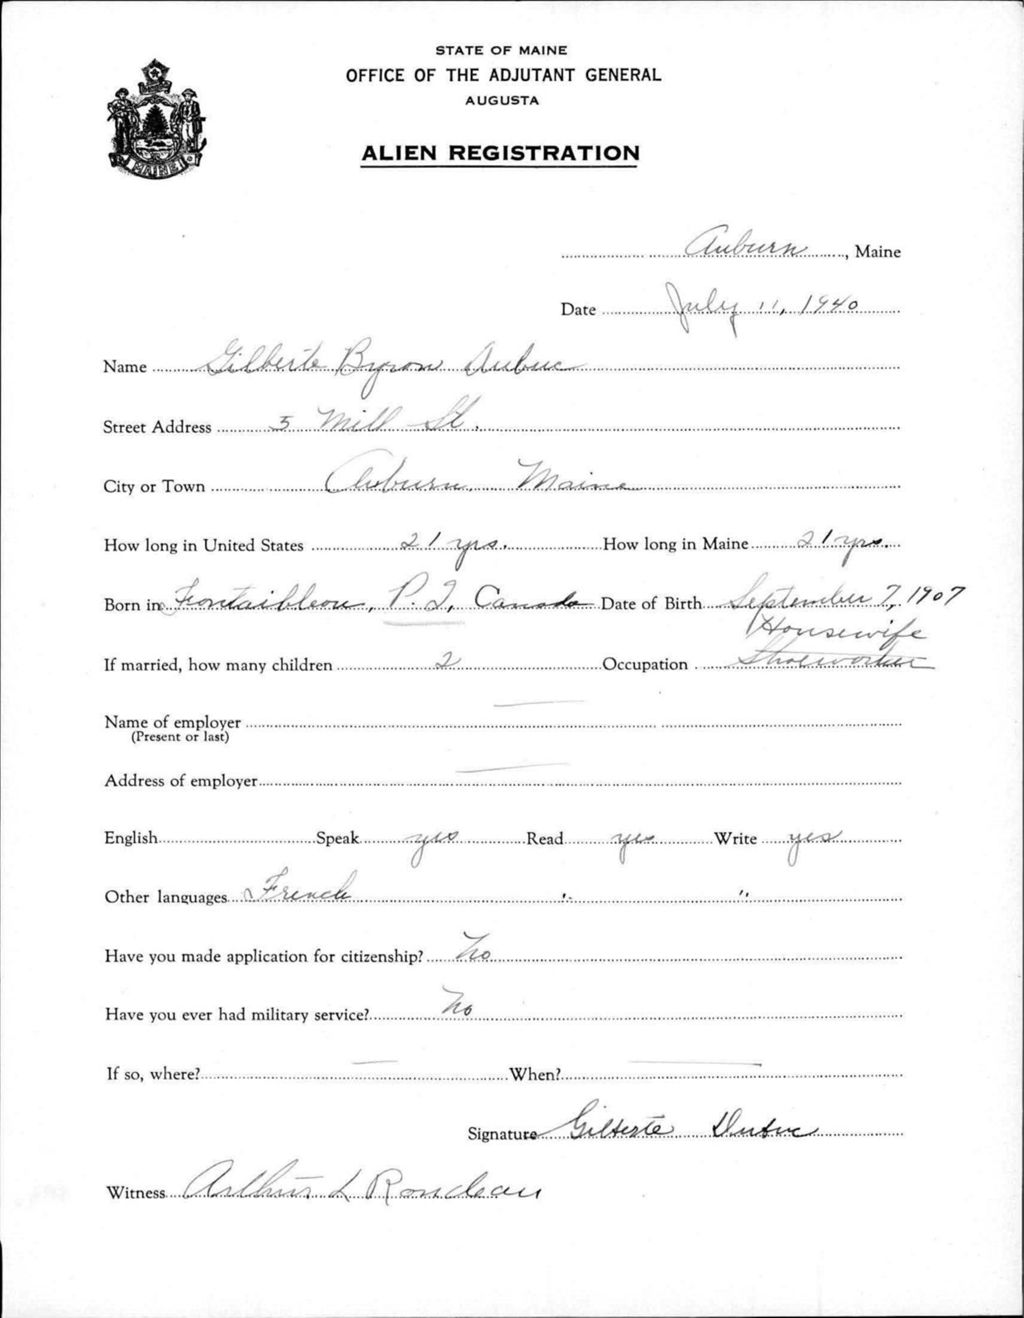 STATE OF MAINE
OFFICE OF THE ADJUTANT GENERAL
AUGUSTA
ALIEN REGISTRATION
MAINE
Auburn, Maine
Date July 11, 1940
Name Gilberte Byron Dubuc
Street Address 5 Mill St.
City or Town Auburn, Maine
How long in United States 21 yrs. How long in Maine 21 yrs.
Born in Fontaibleau, P.Q, Canada Date of Birth September 7, 1907
Housewife
If married, how many children 2 Occupation Shoeworker
Name of employer —
(Present or last)
Address of employer —
English Speak yes Read yes Write yes
Other languages French " "
Have you made application for citizenship? No
Have you ever had military service? No
If so, where? — When? —
Signature Gilberte Dubuc
Witness L